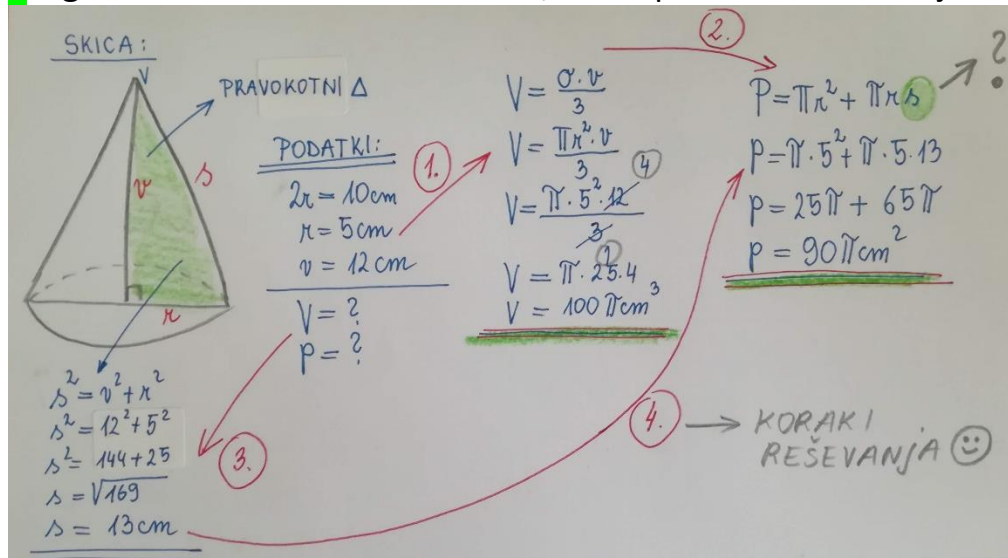 SKICA:
V
PRAVOKOTNI Δ
v
s
r
s² = v² + r²
s² = 12² + 5²
s² = 144 + 25
s = √169
s = 13 cm
PODATKI:
2r = 10 cm
r = 5 cm
v = 12 cm
V = ?
P = ?
1.
V = O·v/3
V = πr²·v/3
V = π·5²·12/3
4
1
V = π·25·4
V = 100 π cm³
2.
P = πr² + πrs
?
P = π·5² + π·5·13
P = 25π + 65π
P = 90 π cm²
3.
4.
KORAKI
REŠEVANJA